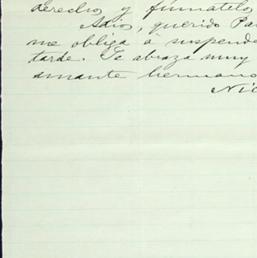 derecho y fúmatelo
Adios, querido Pa
me obliga á suspende
tarde. Te abraza muy
amante hermano
Nic